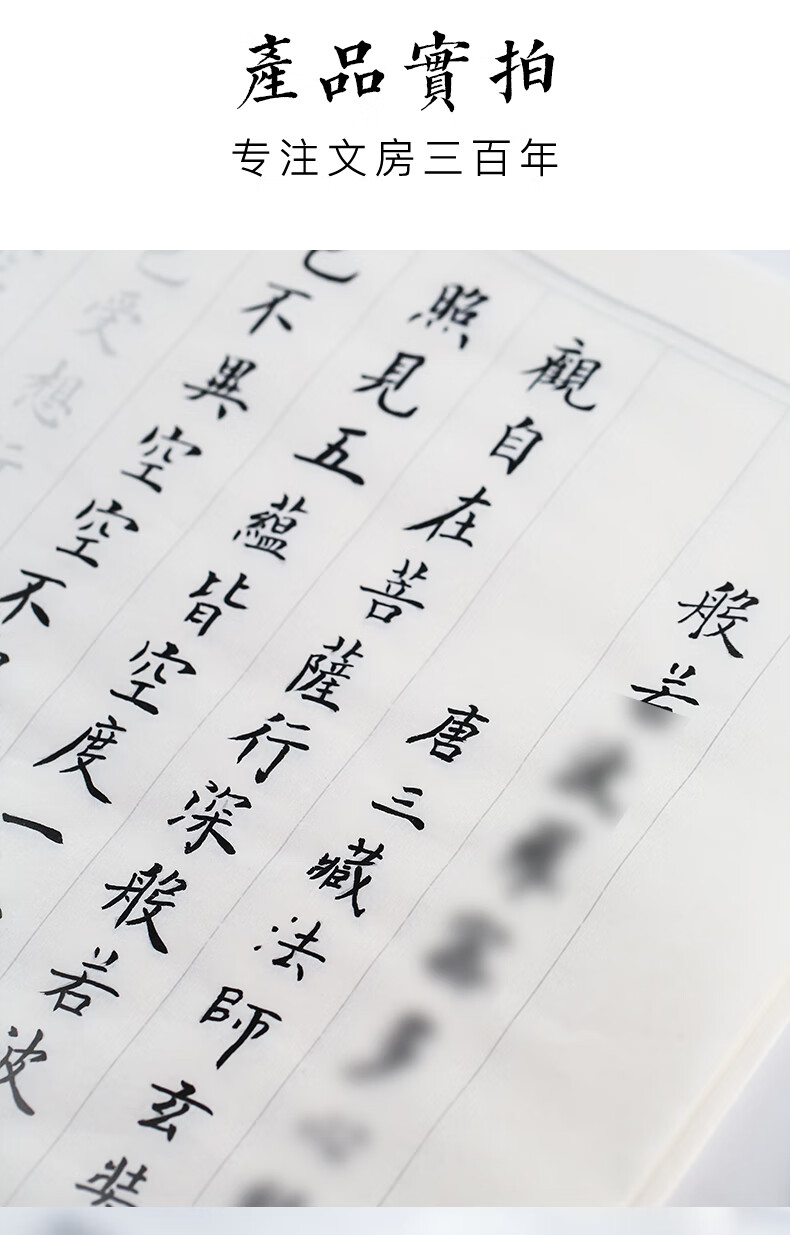 產品實拍
专注文房三百年
般若
唐三藏法師玄奘
觀自在菩薩行深般若波
照見五蘊皆空度一
不異空空不
受想